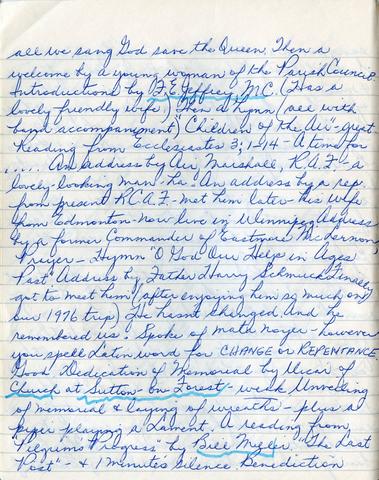 all we sang God save the Queen. Then a
welcome by a young woman of the Parish Council
Introductions by F.E. Jeffrey M.C. (Has a
lovely friendly wife) Then a Hymn (all with
band accompaniment) "Children of the Air" - great
Reading from Ecclesiastes 3; 1-14 - A time for
..... An address by Air Marshall, R.A.F. - a
lovely-looking man - ha - An address by a rep.
from present RCAF - met him later - his wife
from Edmonton - Now live in Winnipeg Address
by a former Commander of Eastmoor
Prayer - Hymn "O God Our Help in Ages
Past" Address by Father Harry Finally
got to meet him (after enjoying him so much on
our 1976 trip) He hasn't changed. And he
remembered us. Spoke of Noyer - however
you spell Latin word for CHANGE or REPENTANCE
Dedication of Memorial by Vicar of
Church at Sutton-on Forest - Unveiling
of memorial & laying of wreaths - plus a
piper playing a Lament. A reading from
"Pilgrims Progress" by Bill "The Last
Post" - & 1 minute's silence. Benediction